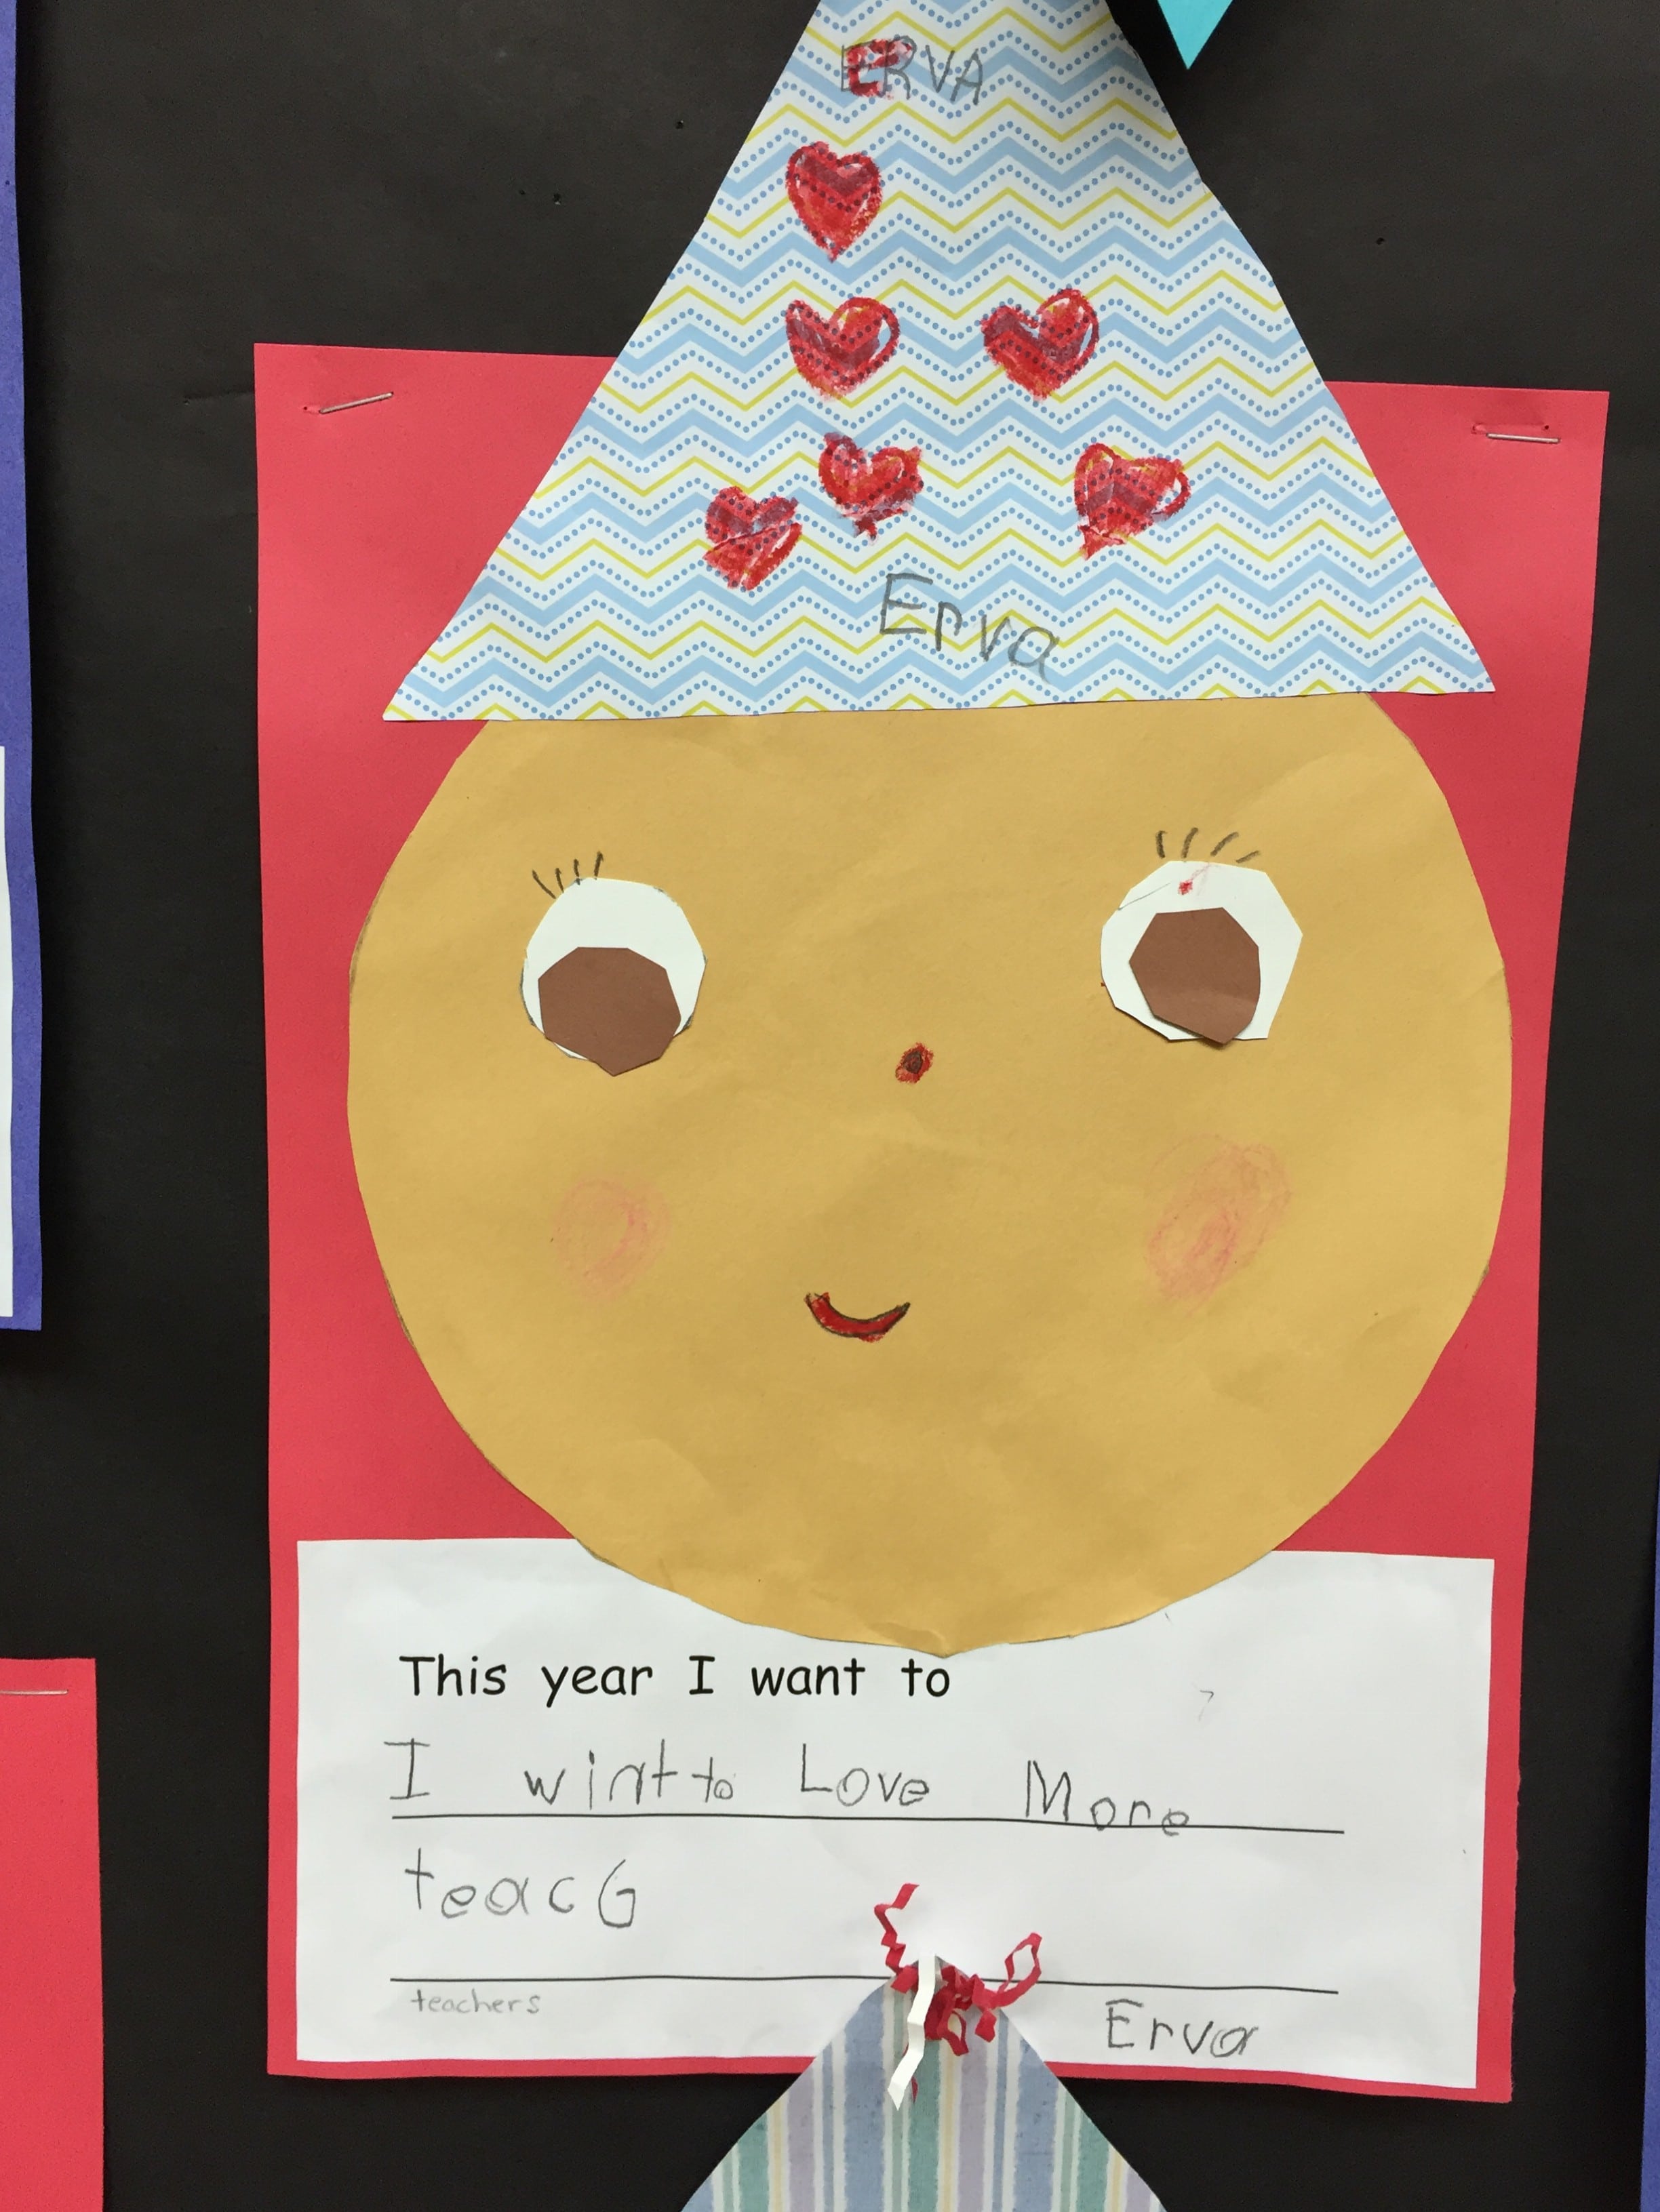 ERVA
Erva
This year I want to
I wint to Love More
teacG
teachers
Erva